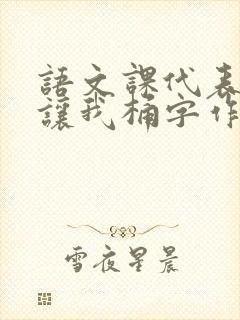 語文課代表
讓我桶字作
雪夜星晨